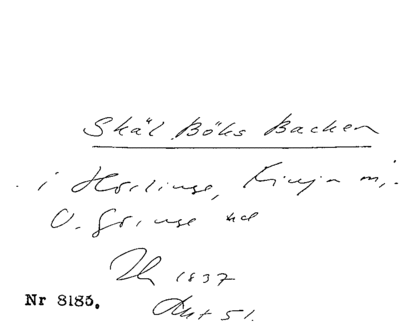 Skäl Böks Backen
i Hörlinge, Finja
V. Göinge hd
1837
Nr 8185.
Akt 51.